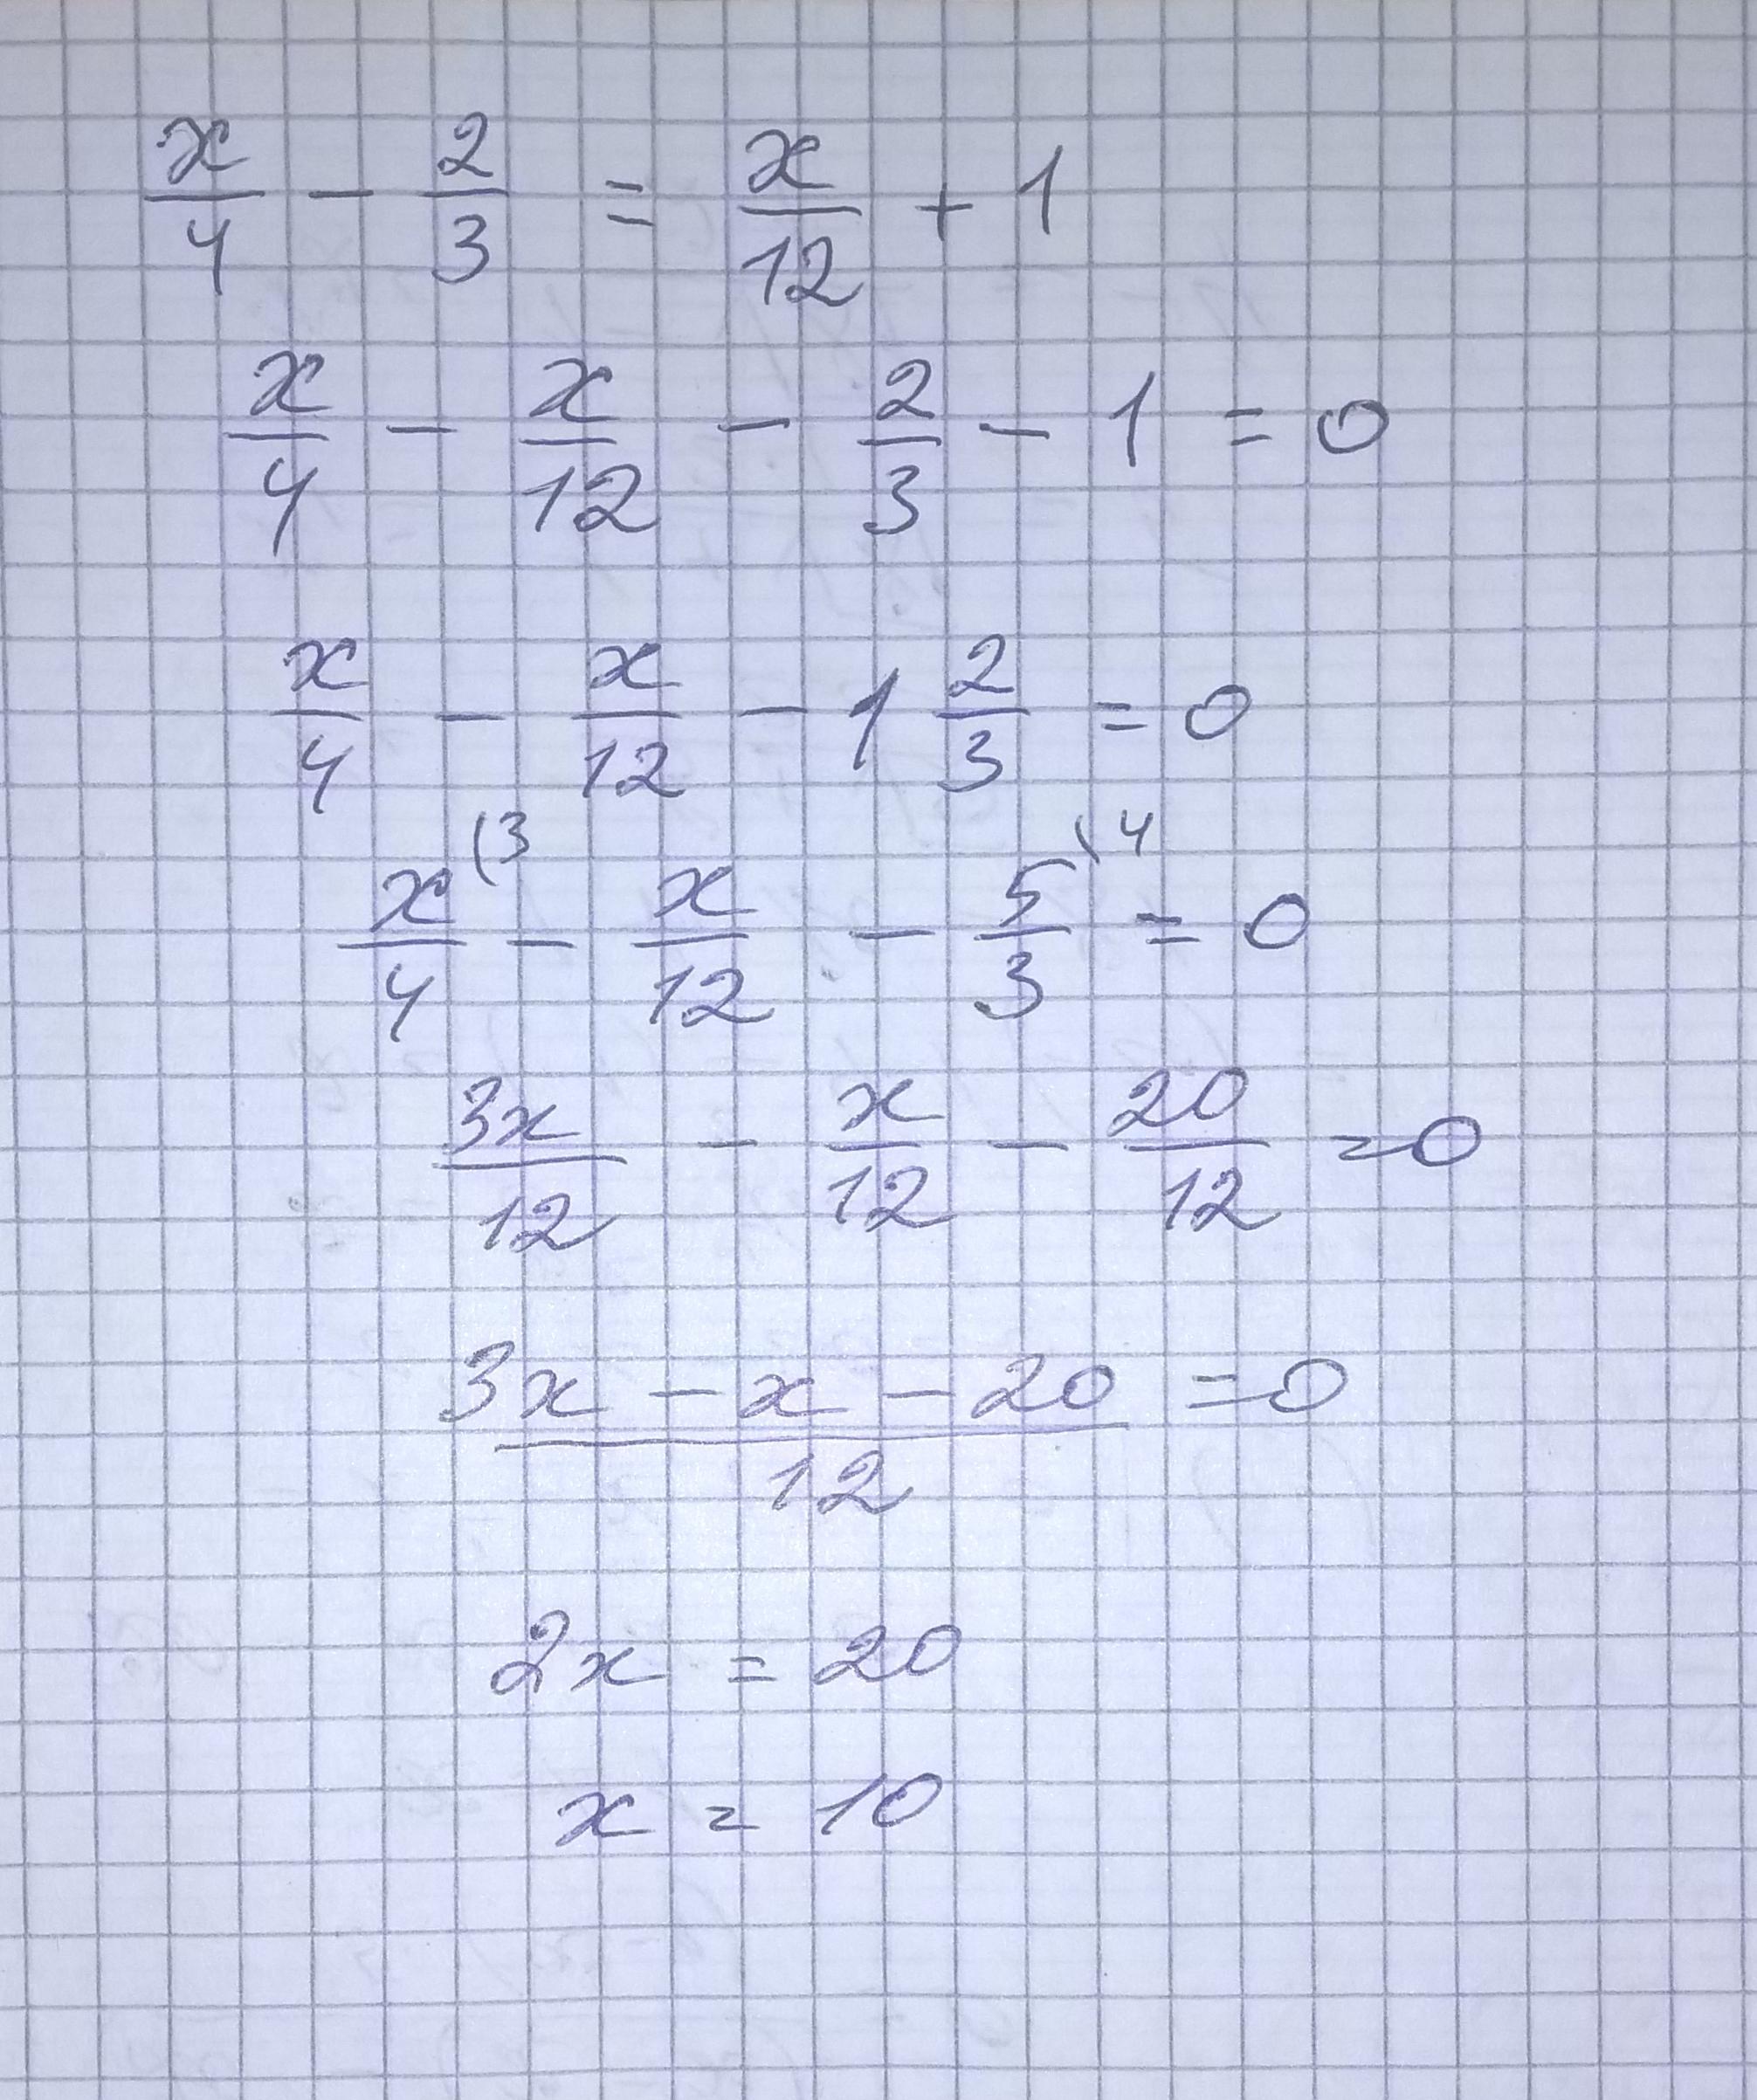 x/4 - 2/3 = x/12 + 1
x/4 - x/12 - 2/3 - 1 = 0
x/4 - x/12 - 1 2/3 = 0
x/4 (3 - x/12 - 5/3 \4 = 0
3x/12 - x/12 - 20/12 = 0
3x - x - 20 / 12 = 0
2x = 20
x = 10